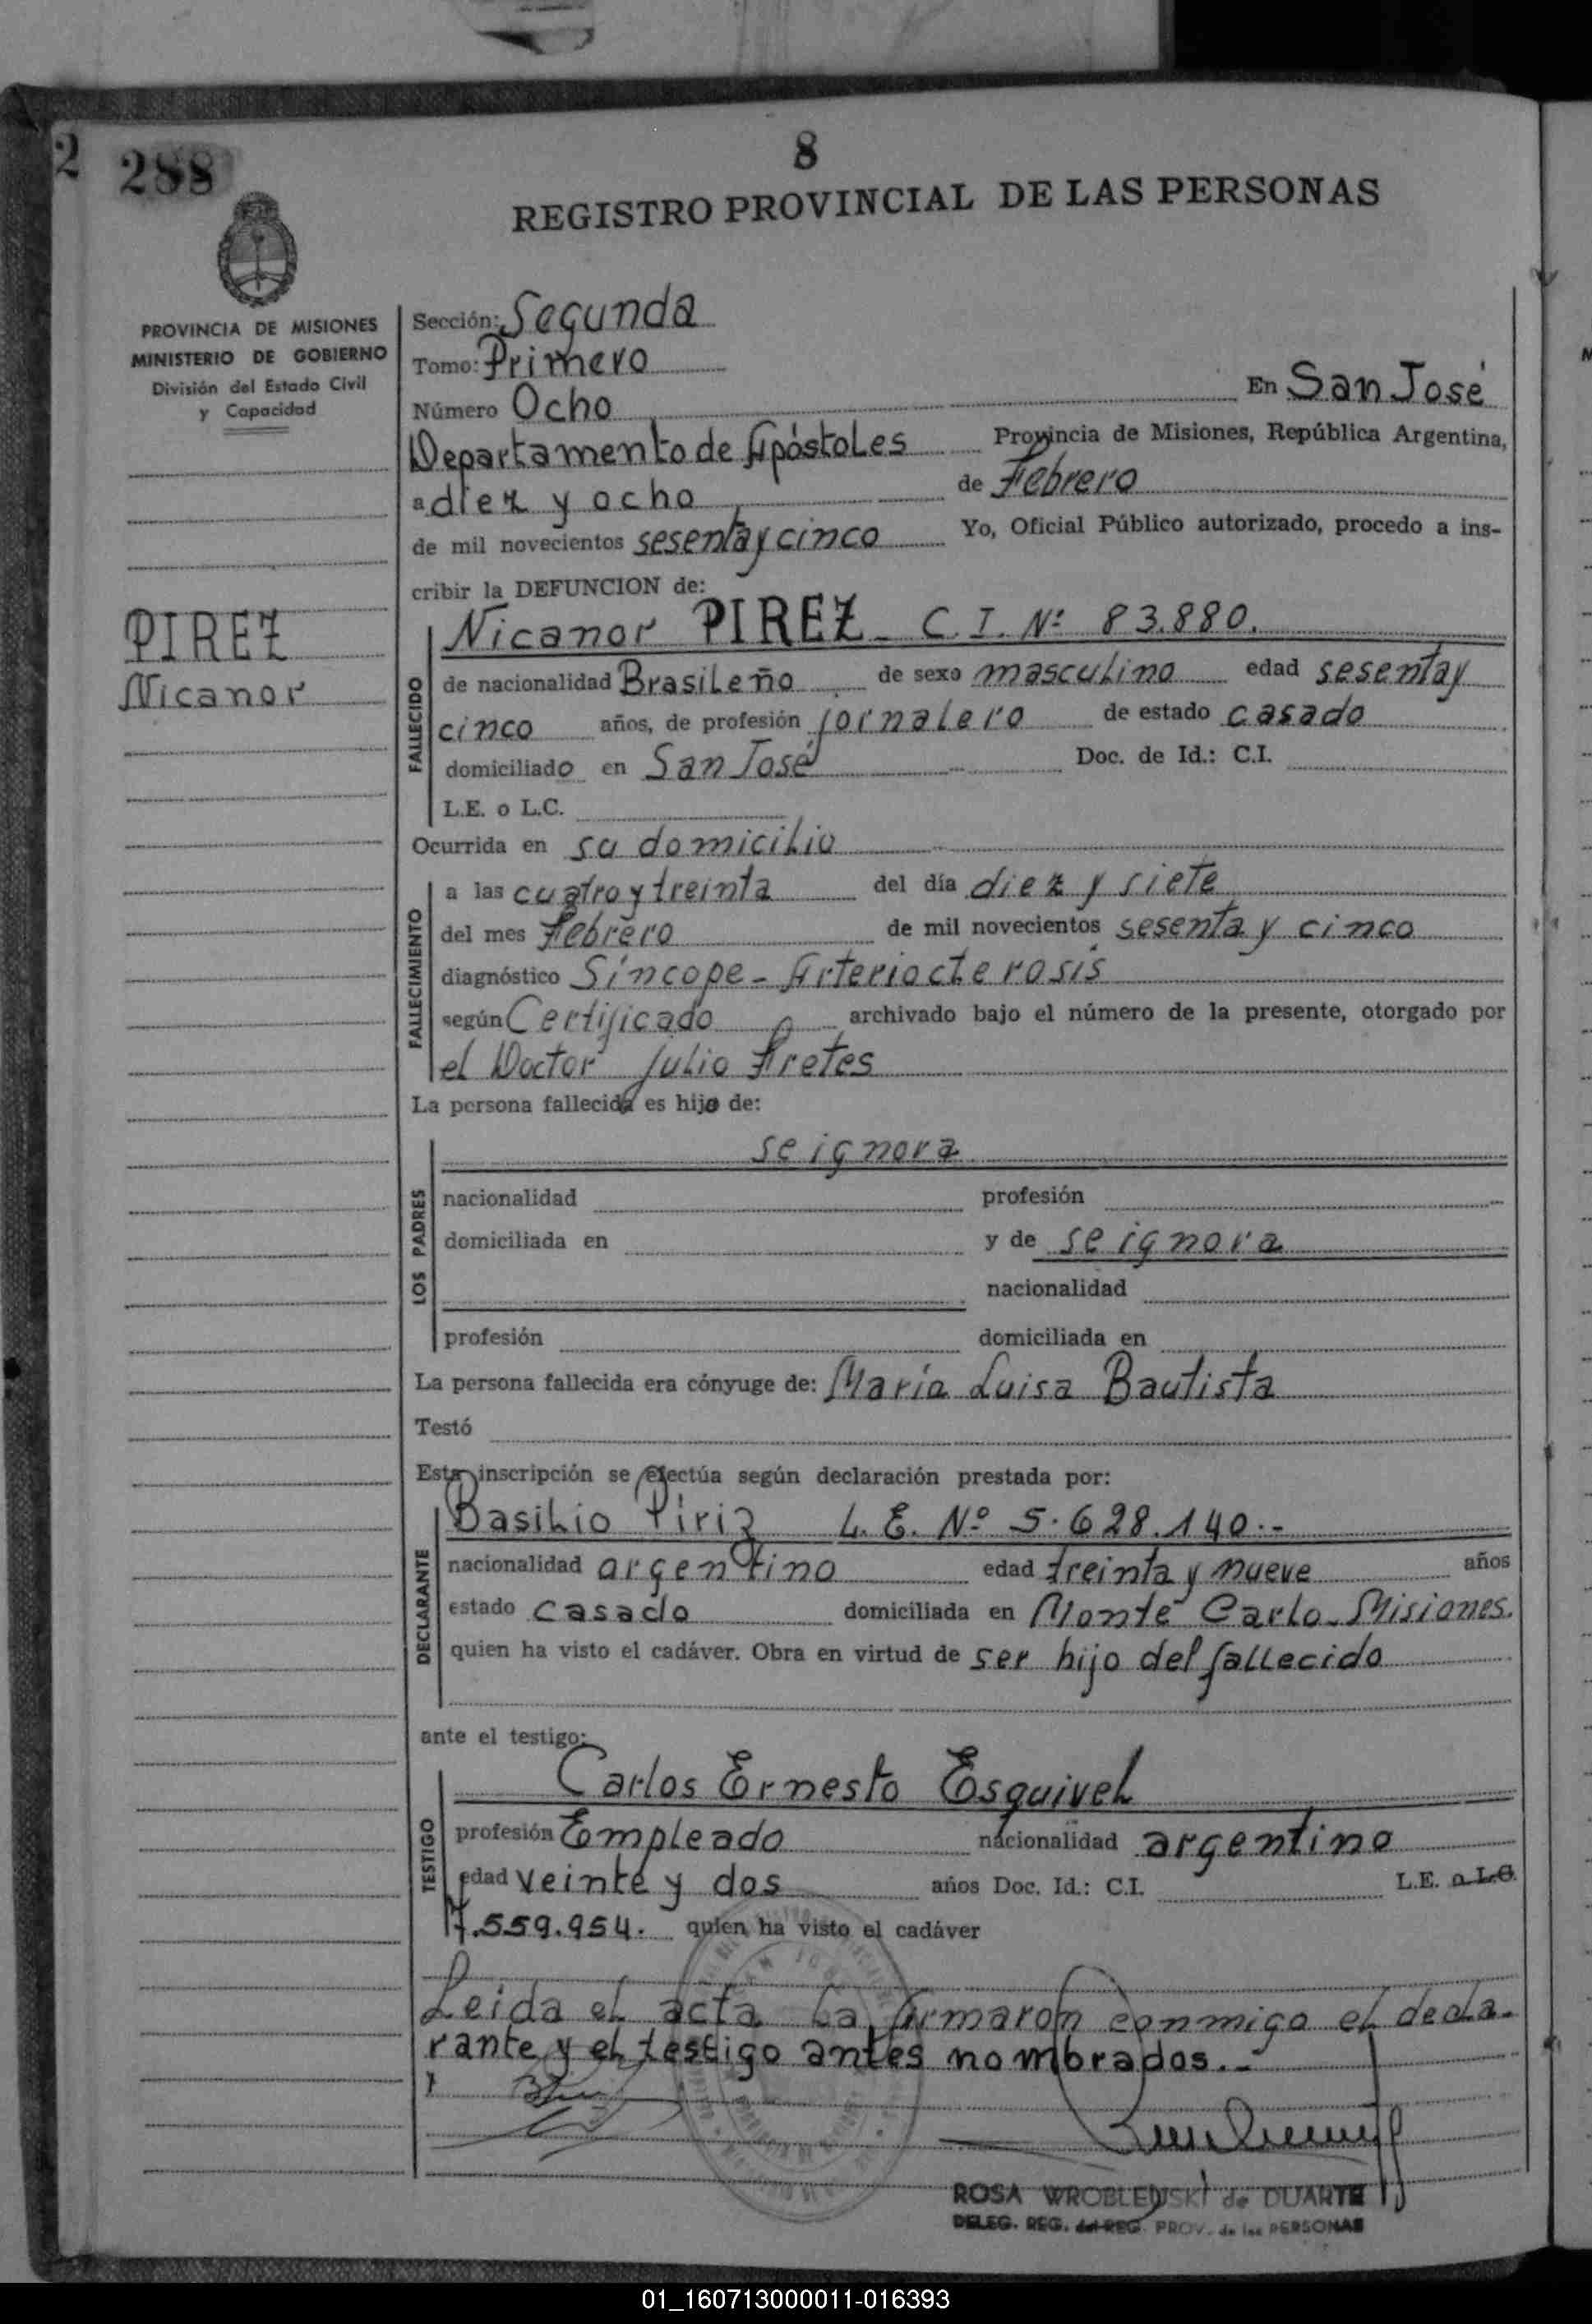 2
288
8
REGISTRO PROVINCIAL DE LAS PERSONAS
PROVINCIA DE MISIONES
MINISTERIO DE GOBIERNO
División del Estado Civil
y Capacidad
PIREZ
Nicanor
Sección: Segunda
Tomo: Primero
Número Ocho En San José
Departamento de Apóstoles Provincia de Misiones, República Argentina,
a diez y ocho de Febrero
de mil novecientos sesenta y cinco Yo, Oficial Público autorizado, procedo a ins-
cribir la DEFUNCION de:
FALLECIDO
Nicanor PIREZ - C. I. Nº 83.880.
de nacionalidad Brasileño de sexo masculino edad sesenta y
cinco años, de profesión jornalero de estado casado
domiciliado en San José Doc. de Id.: C.I.
L.E. o L.C.
Ocurrida en su domicilio
FALLECIMIENTO
a las cuatro y treinta del día diez y siete
del mes Febrero de mil novecientos sesenta y cinco
diagnóstico Síncope - Arterioclerosis
según Certificado archivado bajo el número de la presente, otorgado por
el Doctor Julio Fretes
La persona fallecida es hijo de:
LOS PADRES
se ignora
nacionalidad profesión
domiciliada en y de se ignora
nacionalidad
profesión domiciliada en
La persona fallecida era cónyuge de: María Luisa Bautista
Testó
Esta inscripción se efectúa según declaración prestada por:
DECLARANTE
Basilio Piriz L. E. Nº 5.628.140.-
nacionalidad argentino edad treinta y nueve años
estado casado domiciliada en Monte Carlo - Misiones.
quien ha visto el cadáver. Obra en virtud de ser hijo del fallecido
ante el testigo:
TESTIGO
Carlos Ernesto Esquivel
profesión Empleado nacionalidad argentino
edad veinte y dos años Doc. Id.: C.I. L.E. o L.C.
7.559.954. quien ha visto el cadáver
Leida el acta la firmaron conmigo el decla-
rante y el testigo antes nombrados.-
ROSA WROBLEWSKI de DUARTE
DELEG. REG. del REG. PROV. de las PERSONAS
01_160713000011-016393